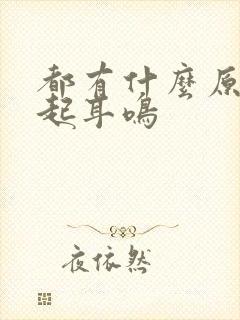 都有什麼原
起耳鳴
夜依然